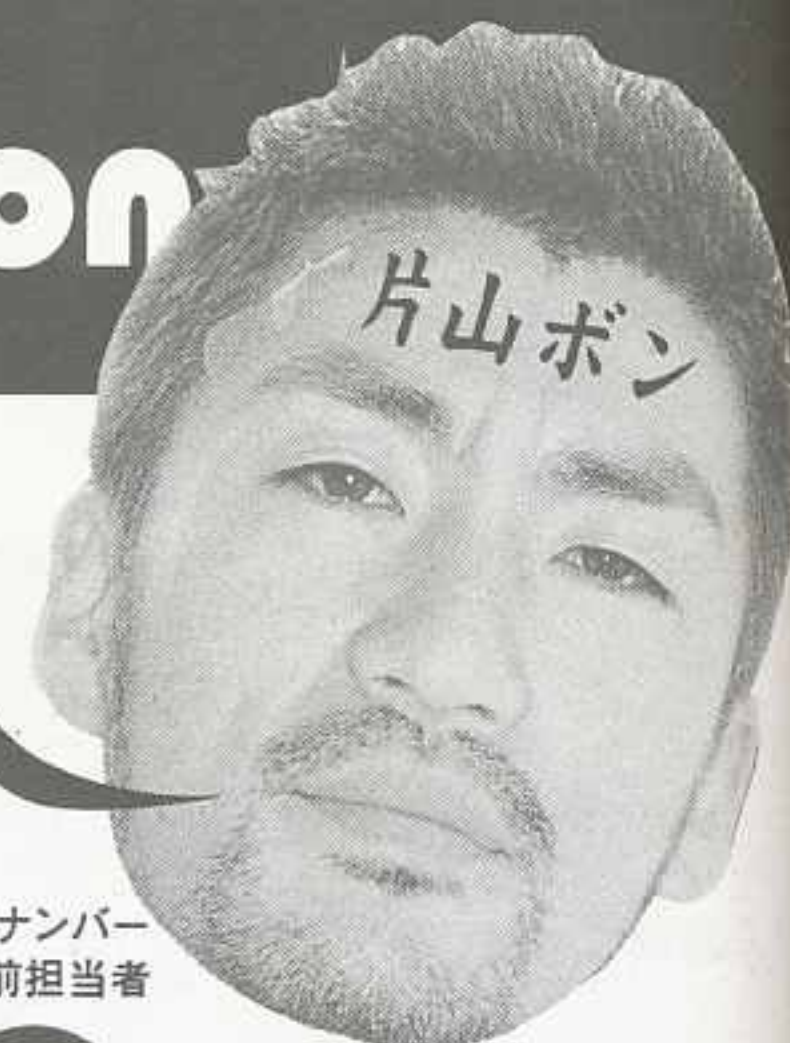 on
片山ボン
ナンバー
前担当者